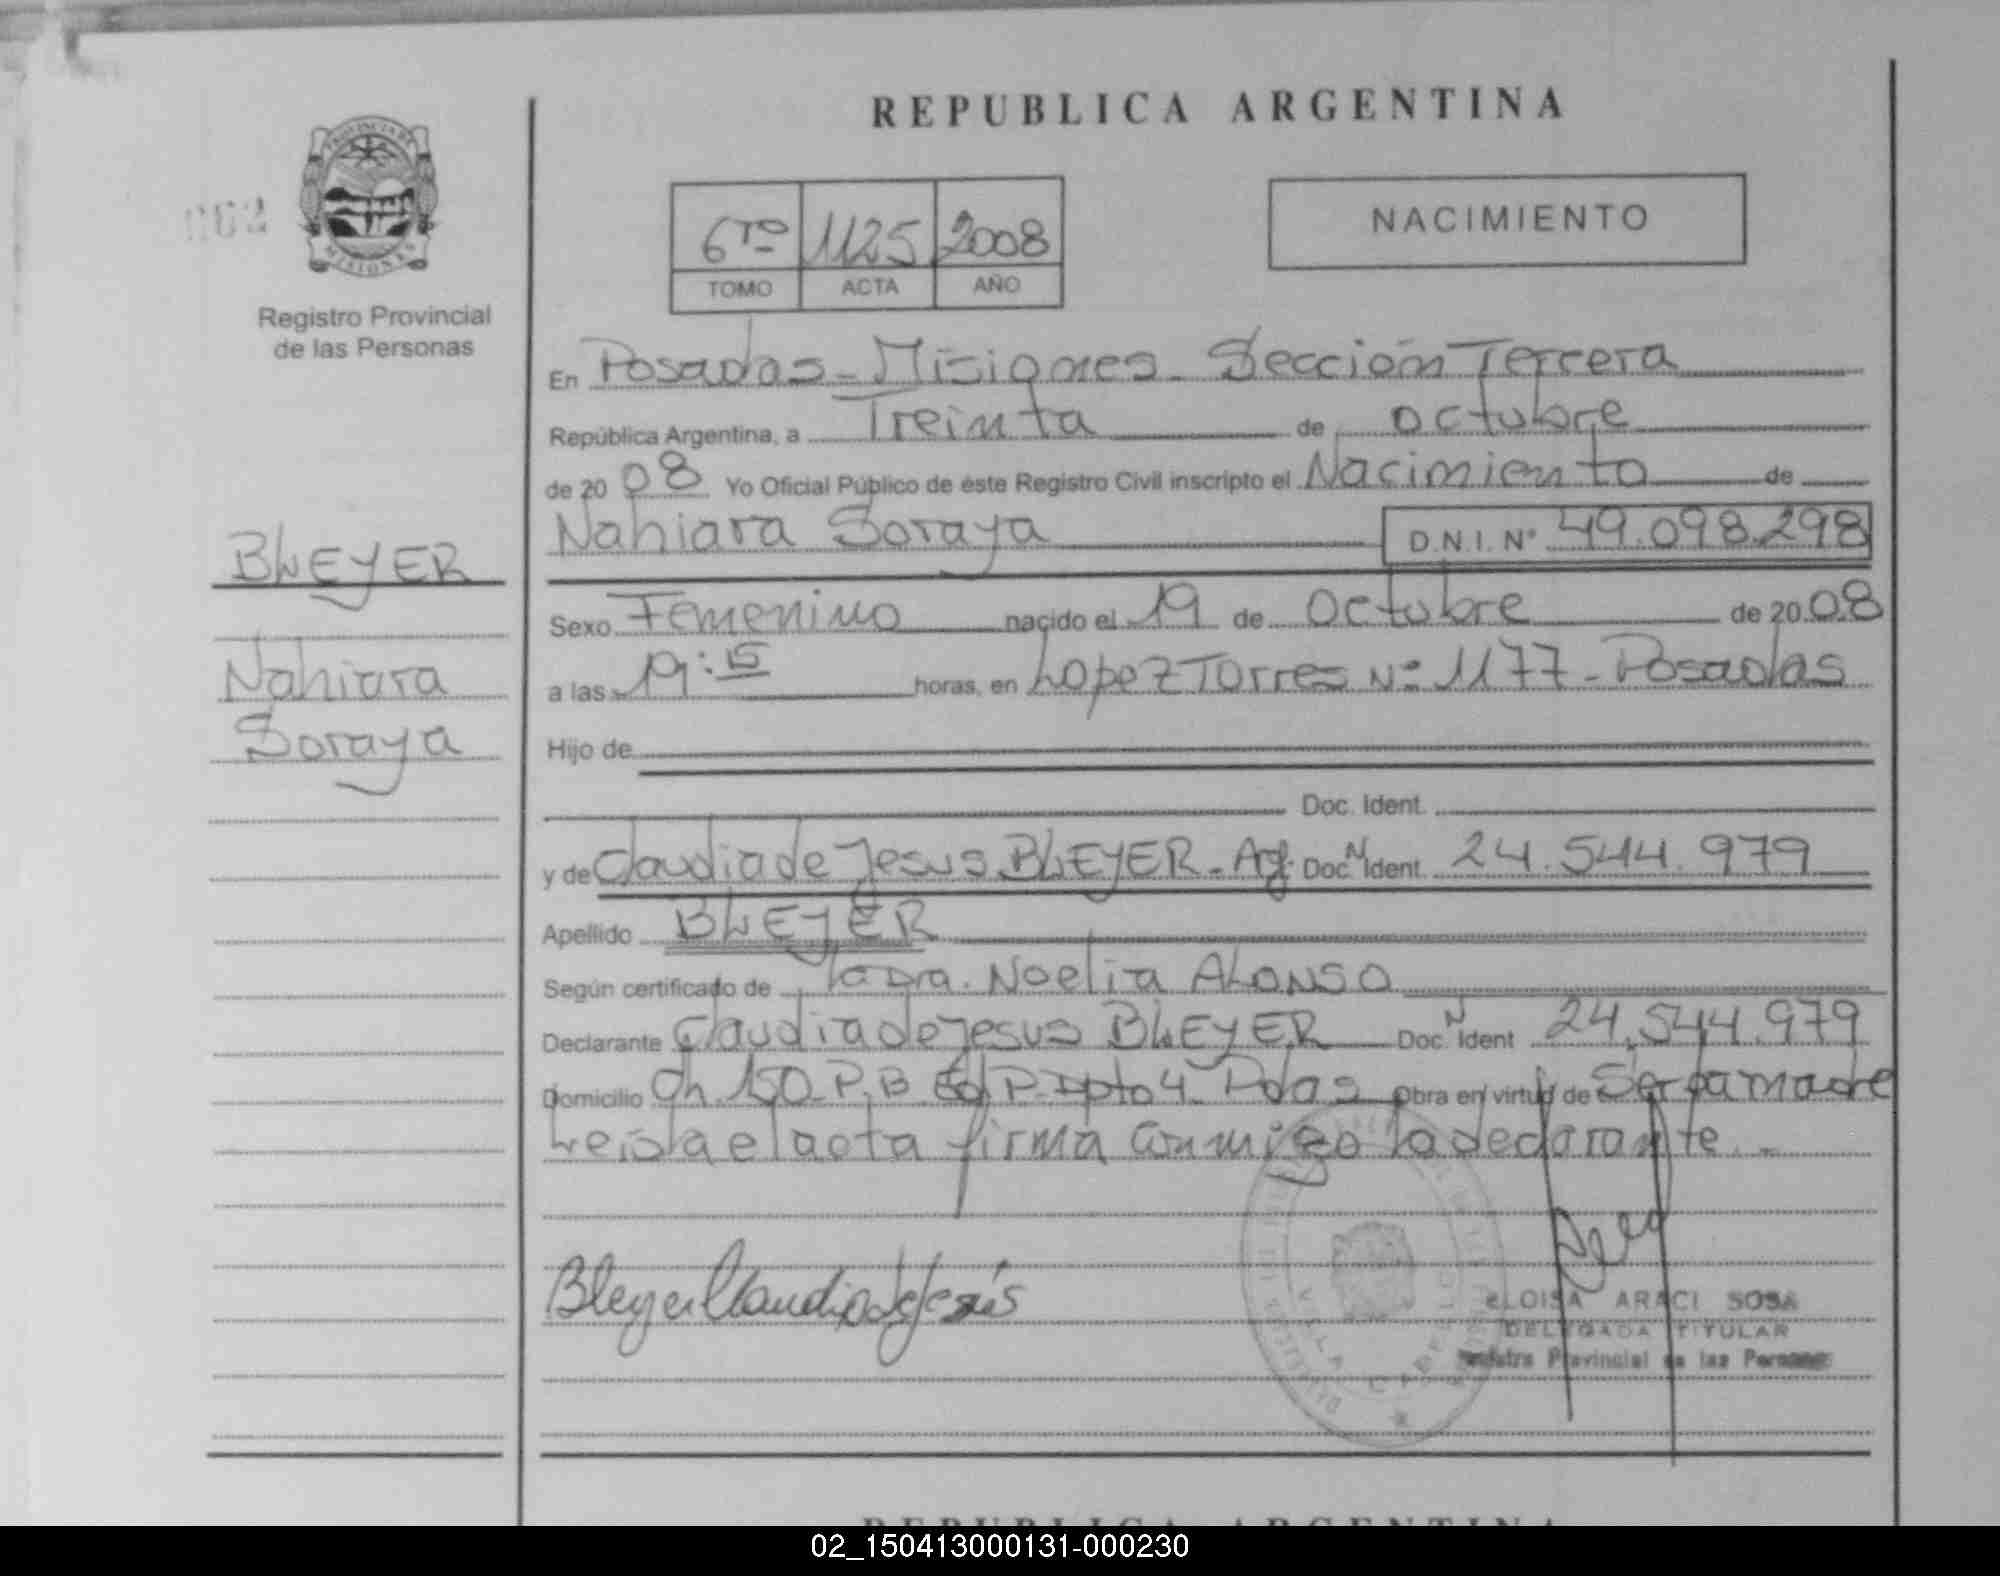 REPUBLICA ARGENTINA
062
PROVINCIA DE
MISIONES
Registro Provincial
de las Personas
6to 1125 2008
TOMO ACTA AÑO
NACIMIENTO
En Posadas - Misiones - Sección Tercera
República Argentina, a Treinta de octubre
de 2008 Yo Oficial Público de éste Registro Civil inscripto el Nacimiento de
Nahiara Soraya D.N.I. Nº 49.098.298
BLEYER
Nahiara
Soraya
Sexo Femenino nacido el 19 de Octubre de 20 08
a las 19:15 horas, en Lopez Torres Nº 1177 - Posadas
Hijo de
Doc. Ident.
y de Claudia de Jesus BLEYER - Arg. Doc. N Ident. 24.544.979
Apellido BLEYER
Según certificado de la Dra. Noelia ALONSO
Declarante Claudia de Jesus BLEYER Doc. N Ident 24.544.979
Domicilio Ch. 150 - P.B Ed P - Dpto 4 - Pdas Obra en virtud de Ser la madre
Leida el acta firma conmigo la declarante. -
Bleyer Claudia de Jesús
ELOISA ARACI SOSA
DELEGADA TITULAR
Registro Provincial de las Personas
VILLA CABELLO
REPUBLICA ARGENTINA
02_150413000131-000230